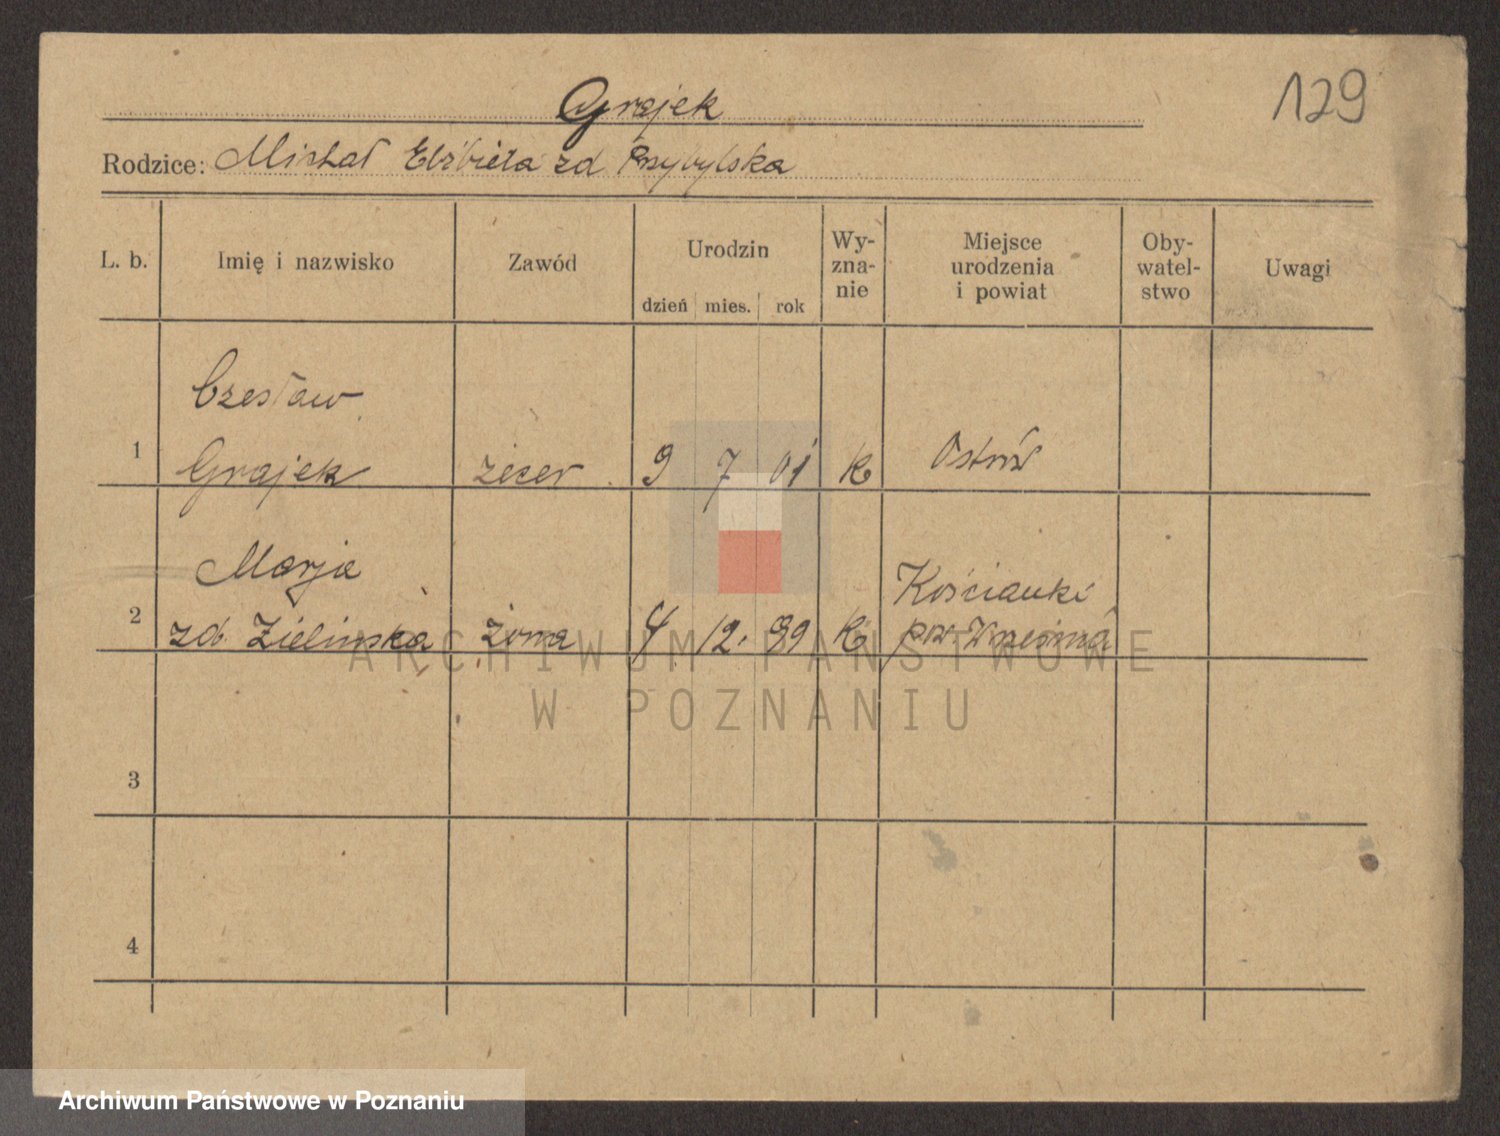 129
Grajek
Rodzice: Michał Elżbieta zd Przybylska
L. b. Imię i nazwisko Zawód Urodzin dzień mies. rok Wy-zna-nie Miejsce urodzenia i powiat Oby-watel-stwo Uwagi
Czesław
1 Grajek zecer 9 7 01 k Ostrów
Marja Kościanki
2 zd. Zielinska żona 4 12. 99 k pow. Września
3
4
ARCHIWUM PAŃSTWOWE
W POZNANIU
Archiwum Państwowe w Poznaniu